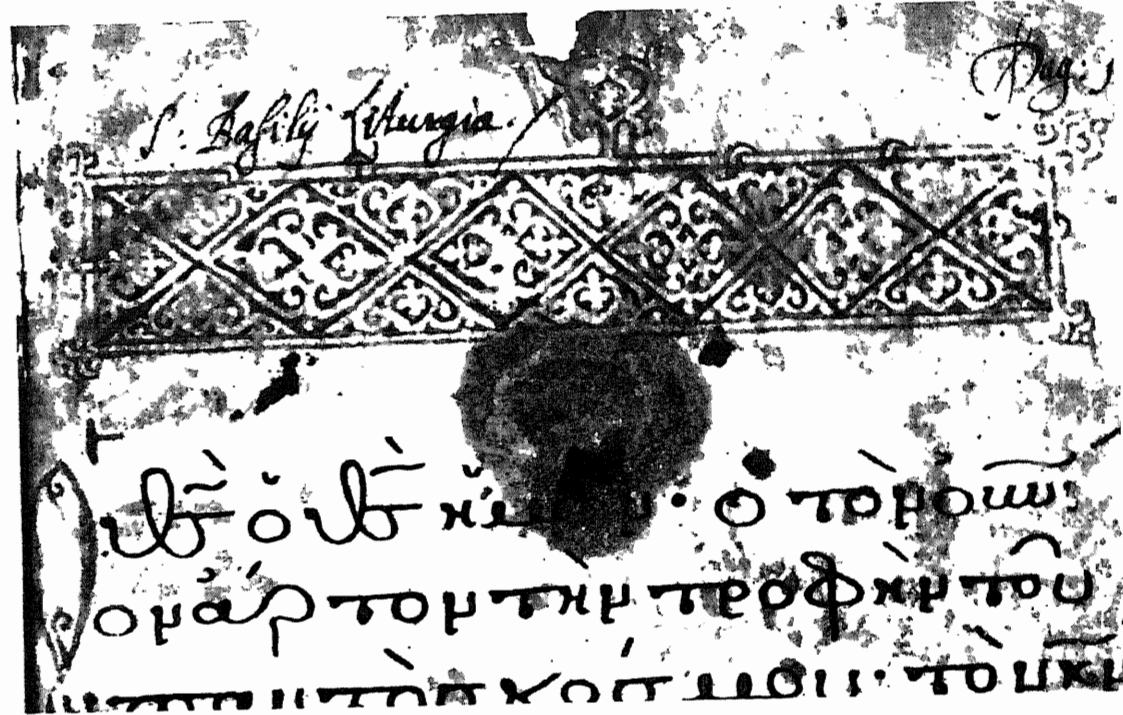 S. Basilij Liturgia. Pag. 1
Ο θ̅ς̅ ὁ θ̅ς̅ ἡμῶν· ὁ τὸν ο̅υ̅ν̅ι
ον ἄρτον τὴν τροφὴν τοῦ
παντὸς κόσμου· τὸν κ̅ν̅